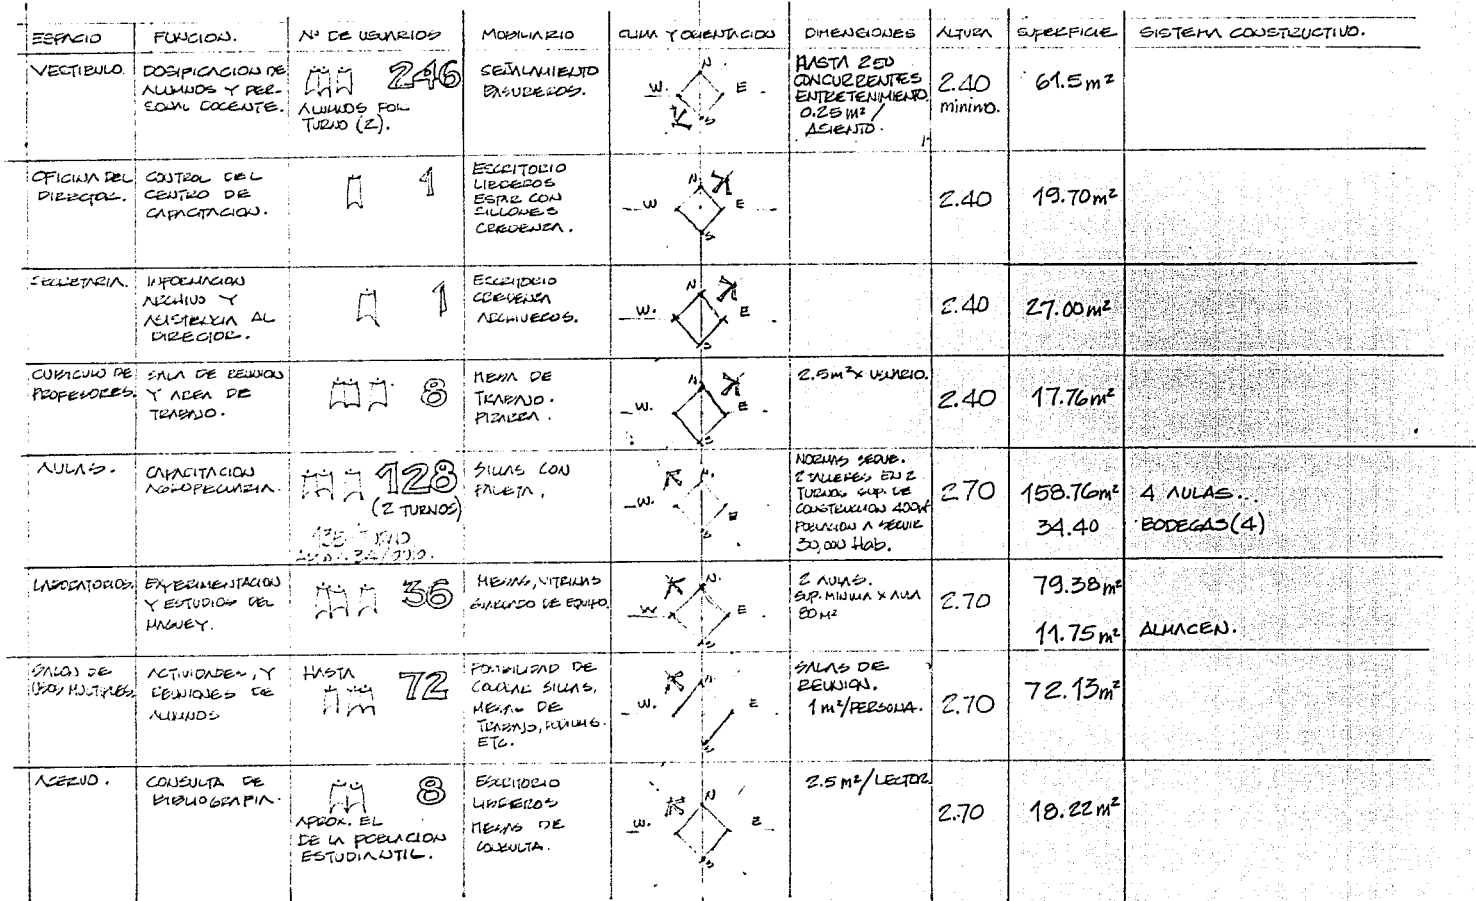 ESPACIO FUNCION. Nº DE USUARIOS MOBILIARIO CLIMA Y ORIENTACION DIMENSIONES ALTURA SUPERFICIE SISTEMA CONSTRUCTIVO.
VESTIBULO. DOSIFICACION DE ALUMNOS Y PERSONAL DOCENTE.
246
ALUMNOS POR
TURNO (2).
SEÑALAMIENTO
BASUREROS.
N
W. E.
S
HASTA 250
CONCURRENTES
ENTRETENIMIENTO
0.25 m²/
ASIENTO.
2.40
minimo.
61.5 m²
OFICINA DEL
DIRECTOR.
CONTROL DEL
CENTRO DE
CAPACITACION.
1
ESCRITORIO
LIBREROS
ESTAR CON
SILLONES
CREDENZA.
N
W E
S
2.40
19.70 m²
SECRETARIA.
INFORMACION
ARCHIVO Y
ASISTENCIA AL
DIRECTOR.
1
ESCRITORIO
CREDENZA
ARCHIVEROS.
N
W. E
S
2.40
27.00 m²
CUBICULO DE
PROFESORES.
SALA DE REUNION
Y AREA DE
TRABAJO.
8
MESA DE
TRABAJO.
PIZARRA.
N
W. E.
S
2.5 m² x USUARIO.
2.40
17.76 m²
AULAS.
CAPACITACION
AGROPECUARIA.
128
(2 TURNOS)
SILLAS CON
PALETA.
N.
W. E
S
NORMAS SEDUE.
2 TALLERES EN 2
TURNOS SUP. DE
CONSTRUCCION 400m²
POBLACION A SERVIR
30,000 Hab.
2.70
158.76 m²
34.40
4 AULAS...
BODEGAS (4)
LABORATORIOS.
EXPERIMENTACION
Y ESTUDIOS DEL
MAGUEY.
36
MESAS, VITRINAS
GUARDADO DE EQUIPO.
N.
W E
S
2 AULAS.
SUP. MINIMA X AULA
80 M²
2.70
79.38 m²
11.75 m²
ALMACEN.
SALON DE
USOS MULTIPLES.
ACTIVIDADES, Y
REUNIONES DE
ALUMNOS
HASTA
72
POSIBILIDAD DE
COLOCAR SILLAS,
MESAS DE
TRABAJO,
ETC.
N
W. E
S
SALAS DE
REUNION.
1 m²/PERSONA.
2.70
72.13 m²
ACERVO.
CONSULTA DE
BIBLIOGRAFIA.
8
APROX. EL
DE LA POBLACION
ESTUDIANTIL.
ESCRITORIO
LIBREROS
MESAS DE
CONSULTA.
N
W. E
S
2.5 m²/LECTOR
2.70
18.22 m²